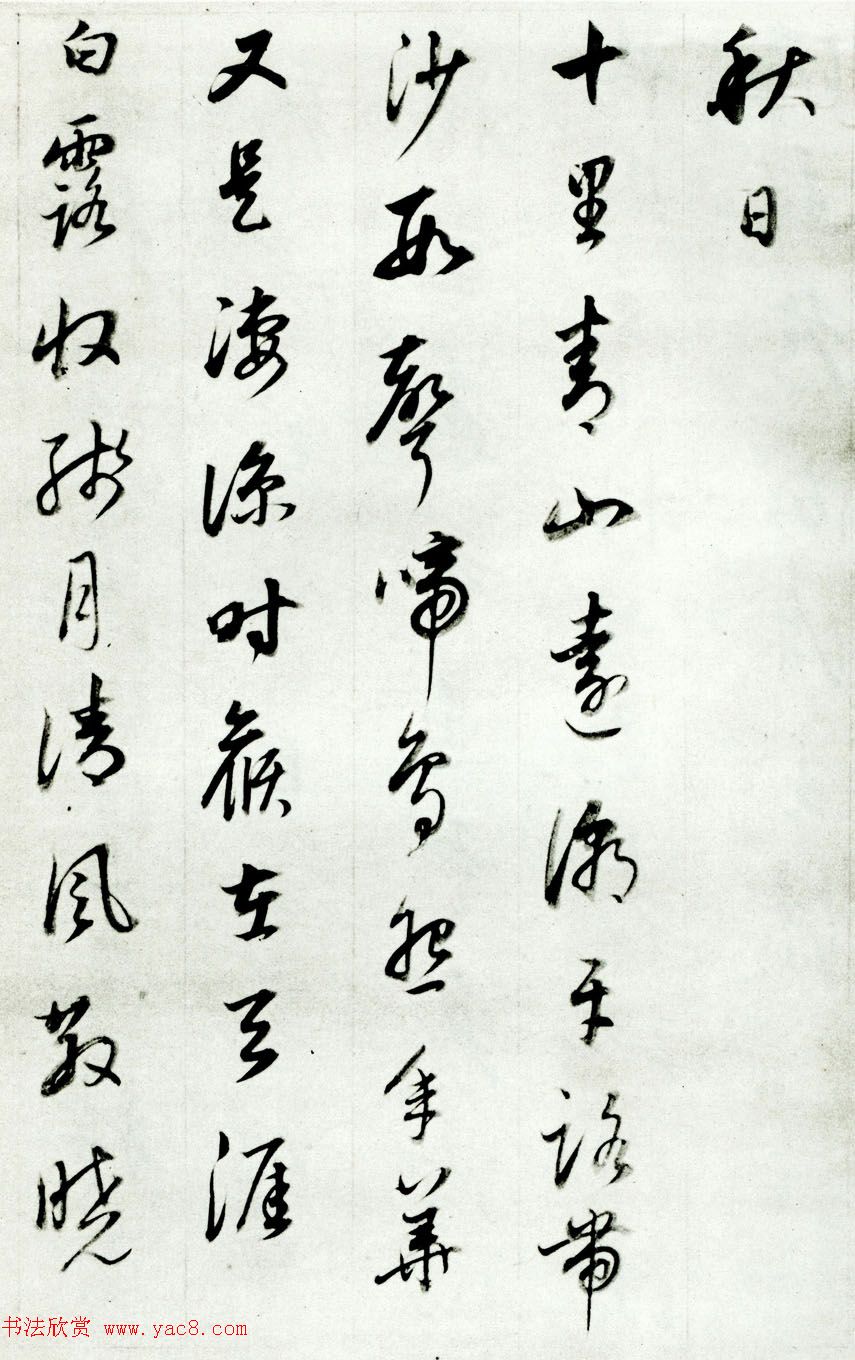 秋日
十里青山遠潮平路帶
沙数聲啼鳥怨年華
又是淒涼时候在天涯
白露收残月清風散曉
书法欣赏 www.yac8.com